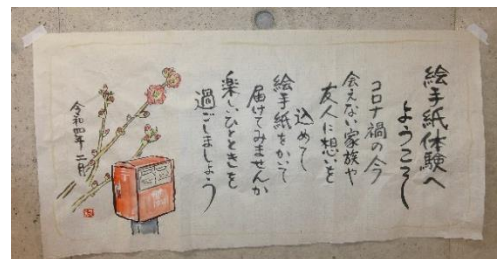 絵手紙体験へ
ようこそ
コロナ禍の今
会えない家族や
友人に想いを
込めて
絵手紙をかいて
届けてみませんか
楽しいひとときを
過ごしましょう
令和四年二月